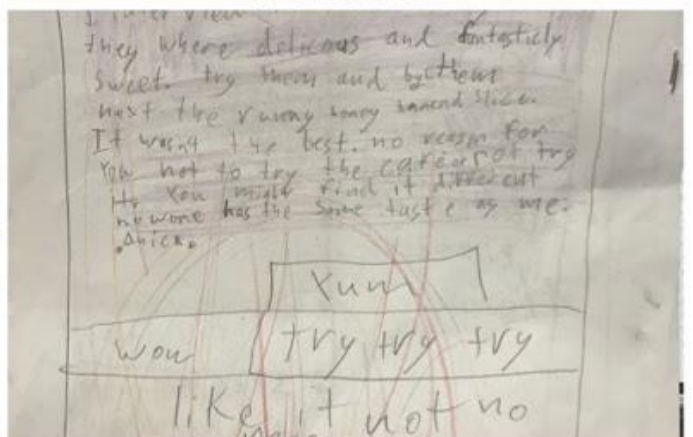 they where delicous and fantasticly
sweet. try them and by them
next the runny honey slice.
It wasnt the best. no reason for
You not to try the or not try
it. You might find it different
nowone has the same taste as me.
Yum
wow try try try
like it not no